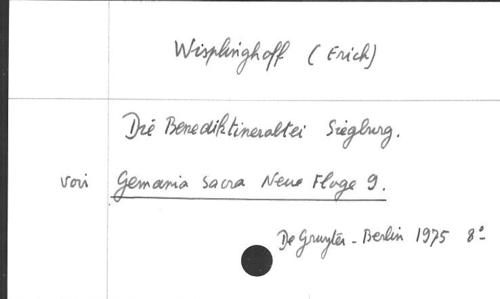 Wisplinghoff (Erich)
Die Benediktinerabtei Siegburg.
voir Germania Sacra Neue Floge 9.
De Gruyter - Berlin 1975 8°